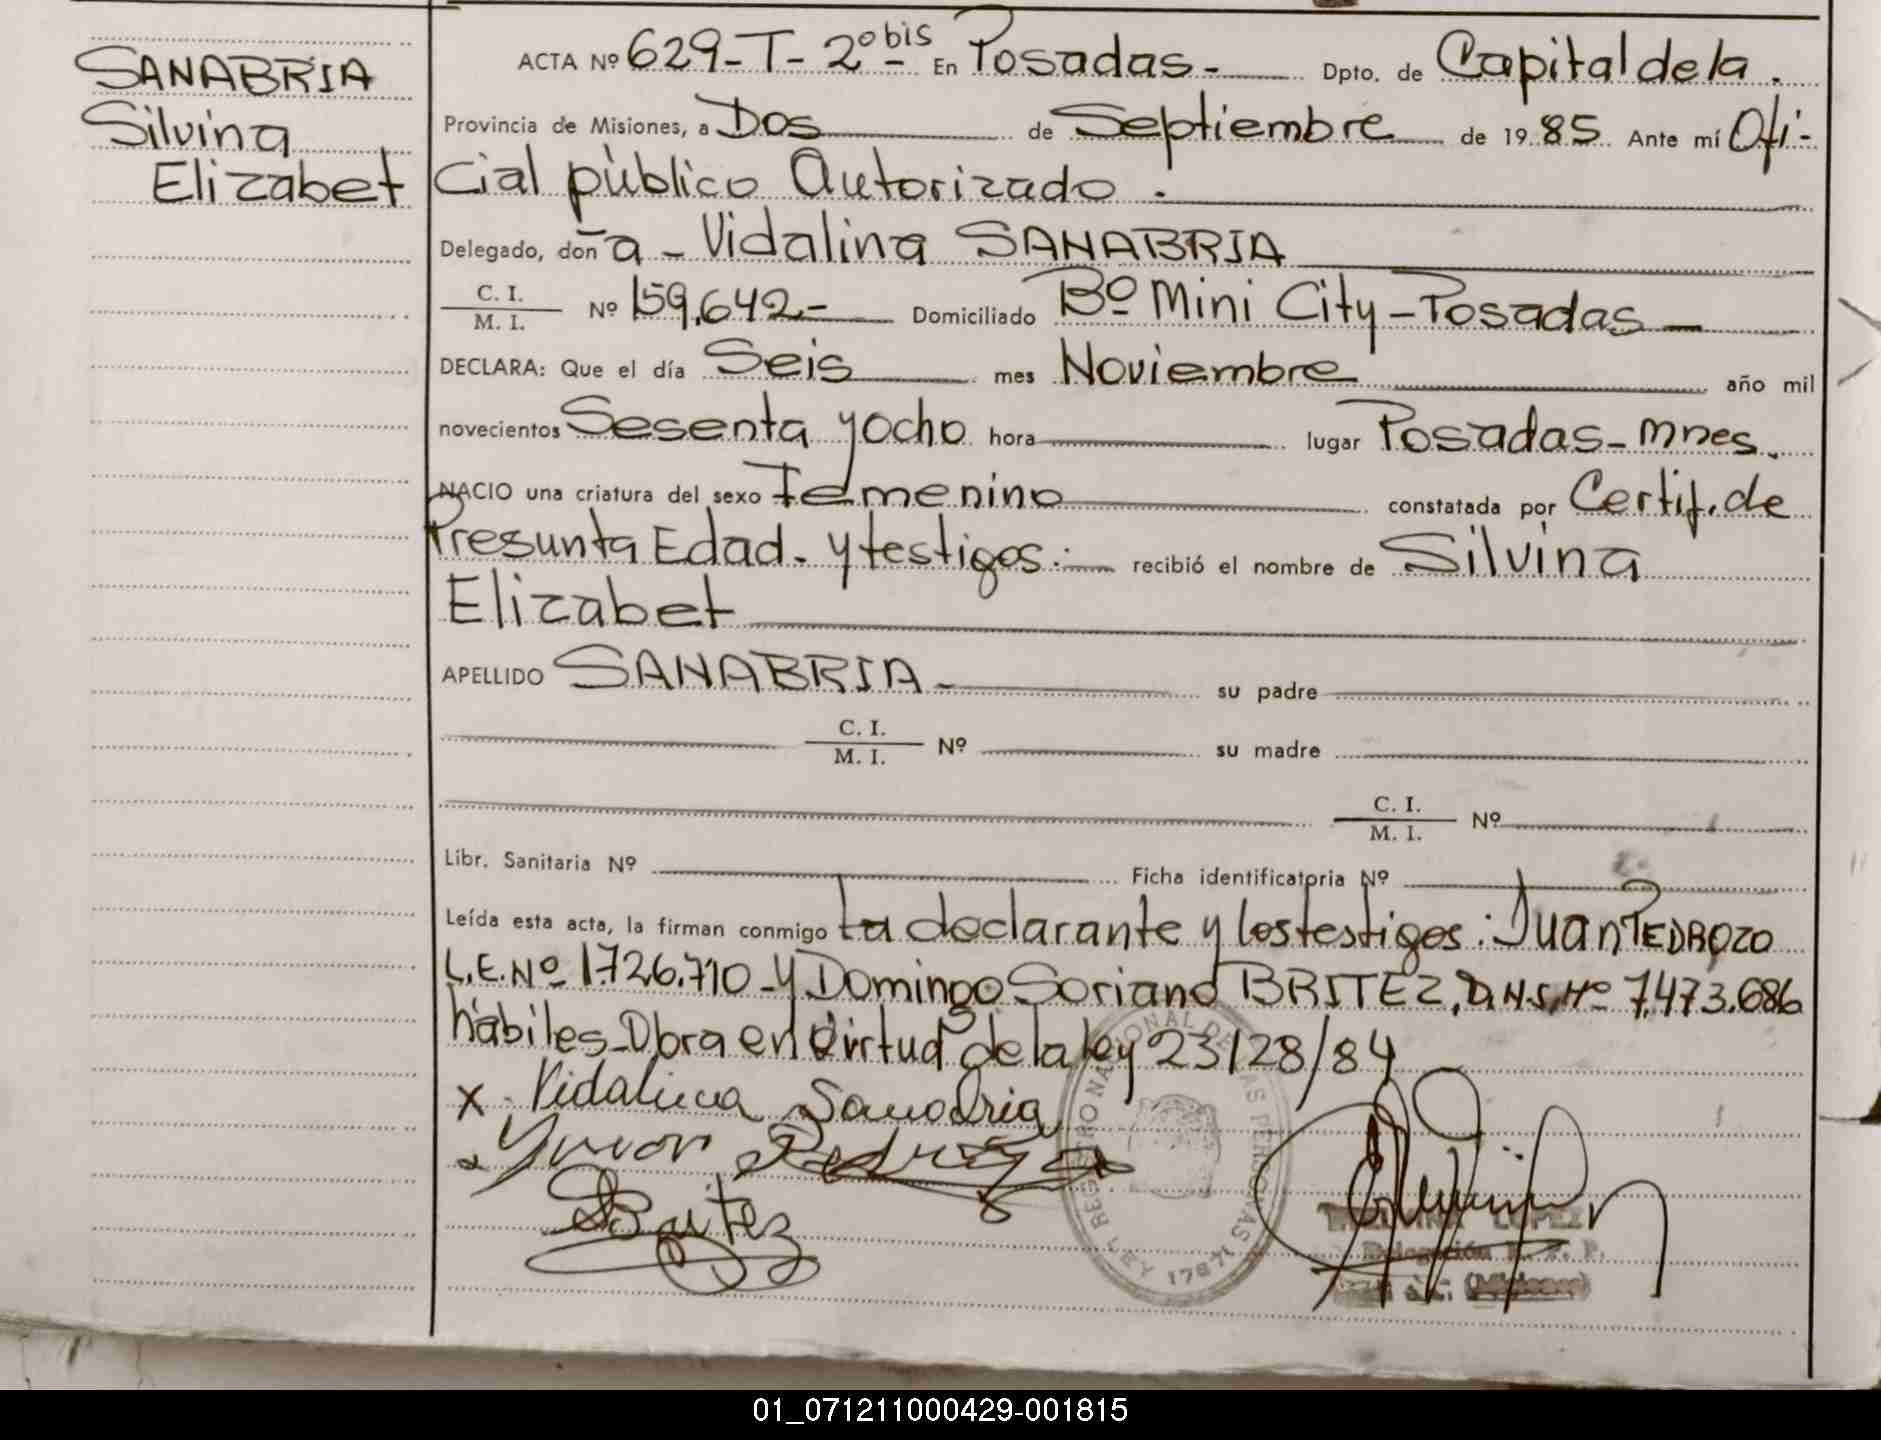 SANABRIA
Silvina
Elizabet
ACTA Nº 629-T-2º bis En Posadas- Dpto. de Capital de la.
Provincia de Misiones, a Dos de Septiembre de 1985. Ante mí Ofi-
cial pùblico Autorizado.
Delegado, don a - Vidalina SANABRIA
C. I.
M. I. Nº 159.642.- Domiciliado Bº Mini City-Posadas
DECLARA: Que el día Seis mes Noviembre año mil
novecientos Sesenta y ocho hora lugar Posadas-Mnes.
NACIO una criatura del sexo Femenino constatada por Certif. de
Presunta Edad. y testigos.- recibió el nombre de Silvina
Elizabet
APELLIDO SANABRIA- su padre
C. I.
M. I. Nº su madre
C. I.
M. I. Nº
Libr. Sanitaria Nº Ficha identificatoria Nº
Leída esta acta, la firman conmigo La declarante y los testigos: Juan PEDROZO
L.E.Nº 1.726.710-y Domingo Soriano BRITEZ, D.N.I.Nº 7.473.686
hábiles-Obra en virtud de la ley 23128/84
x Vidalina Sanabria
Britez
REGISTRO NACIONAL DE LAS PERSONAS
LEY 17671
LOPEZ
Delegación R. P. P.
01_071211000429-001815